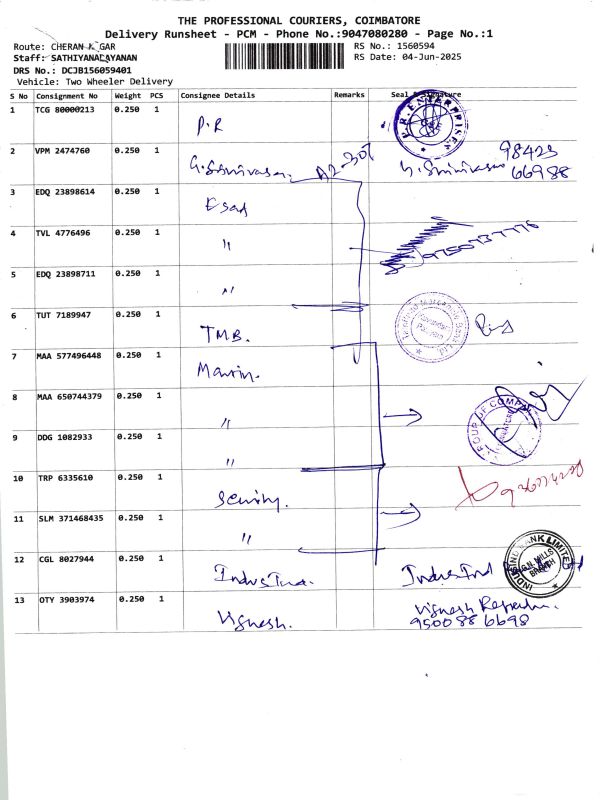 THE PROFESSIONAL COURIERS, COIMBATORE
Delivery Runsheet - PCM - Phone No.:9047080280 - Page No.:1
Route: CHERAN NAGAR RS No.: 1560594
Staff: SATHIYANARAYANAN RS Date: 04-Jun-2025
DRS No.: DCJB156059401
Vehicle: Two Wheeler Delivery
S No Consignment No Weight PCS Consignee Details Remarks Seal & Signature
1 TCG 80000213 0.250 1 P.R
2 VPM 2474760 0.250 1 G.Srinivasan. A2 307 G.Srinivasan 98423 66988
3 EDQ 23898614 0.250 1 Esad
4 TVL 4776496 0.250 1 〃 9750737776
5 EDQ 23898711 0.250 1 〃
6 TUT 7189947 0.250 1 TMB.
7 MAA 577496448 0.250 1
8 MAA 650744379 0.250 1 〃
9 DDG 1082933 0.250 1 〃
10 TRP 6335610 0.250 1
11 SLM 371468435 0.250 1 〃
12 CGL 8027944 0.250 1 IndusInd. IndusInd
INDUSIND BANK LIMITED
G.N. MILLS
BRANCH
13 OTY 3903974 0.250 1 Vignesh. Vignesh
9500886698